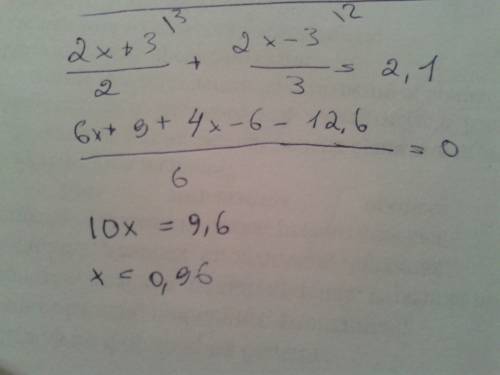 (2x+3)/2 \3 + (2x-3)/3 \2 = 2,1
(6x+9+4x-6-12,6)/6 = 0
10x = 9,6
x = 0,96